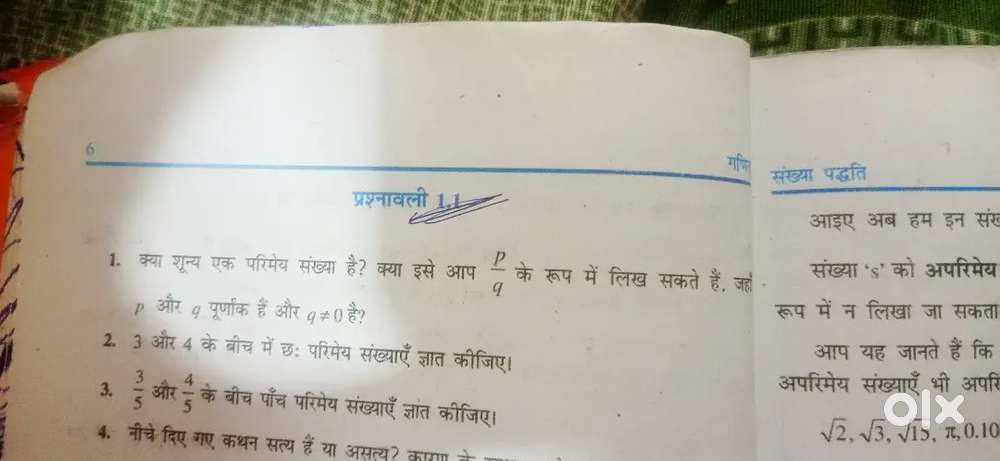 6
प्रश्नावली 1.1
1. क्या शून्य एक परिमेय संख्या है? क्या इसे आप p/q के रूप में लिख सकते हैं, जहाँ
p और q पूर्णांक हैं और q ≠ 0 है?
2. 3 और 4 के बीच में छः परिमेय संख्याएँ ज्ञात कीजिए।
3. 3/5 और 4/5 के बीच पाँच परिमेय संख्याएँ ज्ञात कीजिए।
4. नीचे दिए गए कथन सत्य हैं या असत्य? कारण के
संख्या पद्धति
आइए अब हम इन
संख्या 's' को अपरिमेय
रूप में न लिखा जा सकता
आप यह जानते हैं कि
अपरिमेय संख्याएँ भी
√2, √3, √15, π, 0.10
olx